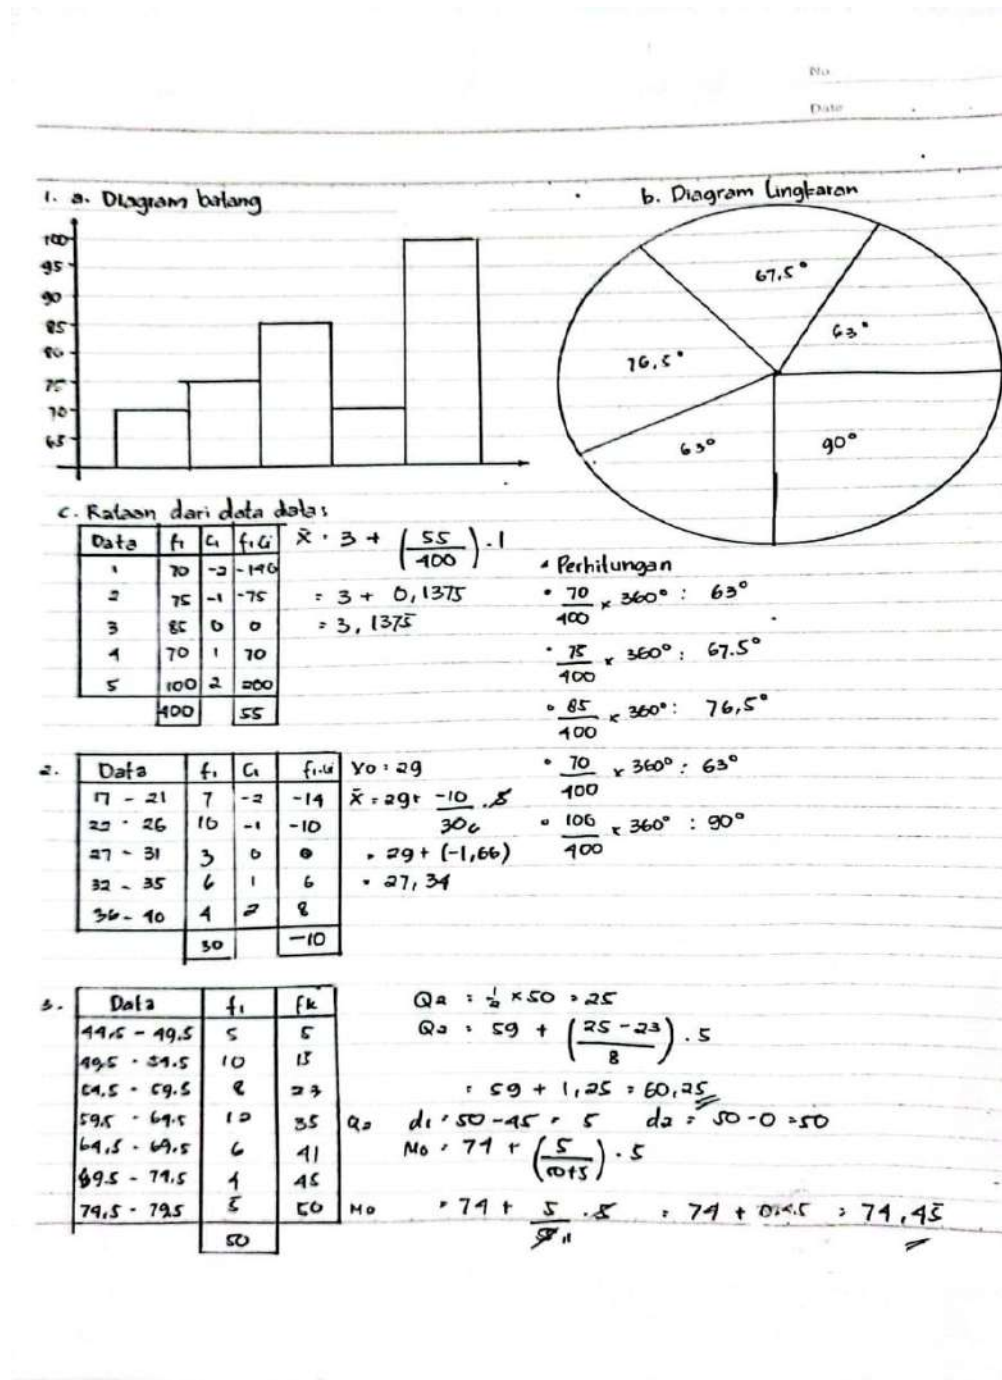 No
Date
1. a. Diagram batang
100
95
90
85
80
75
70
65
b. Diagram lingkaran
67,5°
63°
76,5°
63°
90°
c. Rataan dari data data:
Data f₁ C₁ f₁.Ci
1 70 -2 -140
2 75 -1 -75
3 85 0 0
4 70 1 70
5 100 2 200
400 55
x̄ = 3 + (55/400) . 1
= 3 + 0,1375
= 3,1375
• Perhitungan
• 70/400 x 360° : 63°
• 75/400 x 360° : 67.5°
• 85/400 x 360° : 76,5°
• 70/400 x 360° : 63°
• 100/400 x 360° : 90°
2.
Data f₁ C₁ f₁.Ci
17 - 21 7 -2 -14
22 - 26 10 -1 -10
27 - 31 3 0 0
32 - 35 6 1 6
36 - 40 4 2 8
30 -10
X0 = 29
x̄ = 29 + -10/30 6 . 5
= 29 + (-1,66)
= 27,34
3.
Data f₁ fk
44,5 - 49,5 5 5
49,5 - 54.5 10 15
54,5 - 59.5 8 23
59.5 - 64.5 12 35 Q2
64,5 - 69.5 6 41
69.5 - 74,5 4 45
74,5 - 79.5 5 50 Mo
50
Q2 = 1/2 x 50 = 25
Q2 = 59 + (25 - 23/8) . 5
= 59 + 1,25 = 60,25
d1 = 50 - 45 = 5 d2 = 50 - 0 = 50
Mo = 74 + (5/50+5) . 5
= 74 + 5/55 11 . 5 = 74 + 0,45 = 74,45